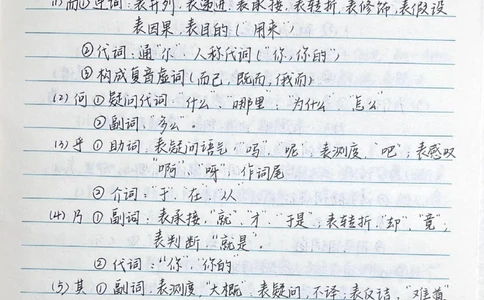 (1)而①连词:表并列,表递进,表承接,表转折,表修饰,表假设
表因果,表目的("用来")
②代词:通"尔",人称代词("你,你的")
③构成复音虚词(而已,既而,俄而)
(2)何①疑问代词"什么""哪里""为什么""怎么"
②副词:"多么"。
(3)乎①助词,表疑问语气"吗""呢",表测度,"吧";表感叹
"啊""呀"作词尾
②介词:"于,在,从"
(4)乃①副词:表承接,"就""才""于是";表转折,"却""竟",
表判断"就是"。
②代词:"你""你的"
(5)其①副词,表测度,"大概",表疑问,不译;表反诘,"难道"